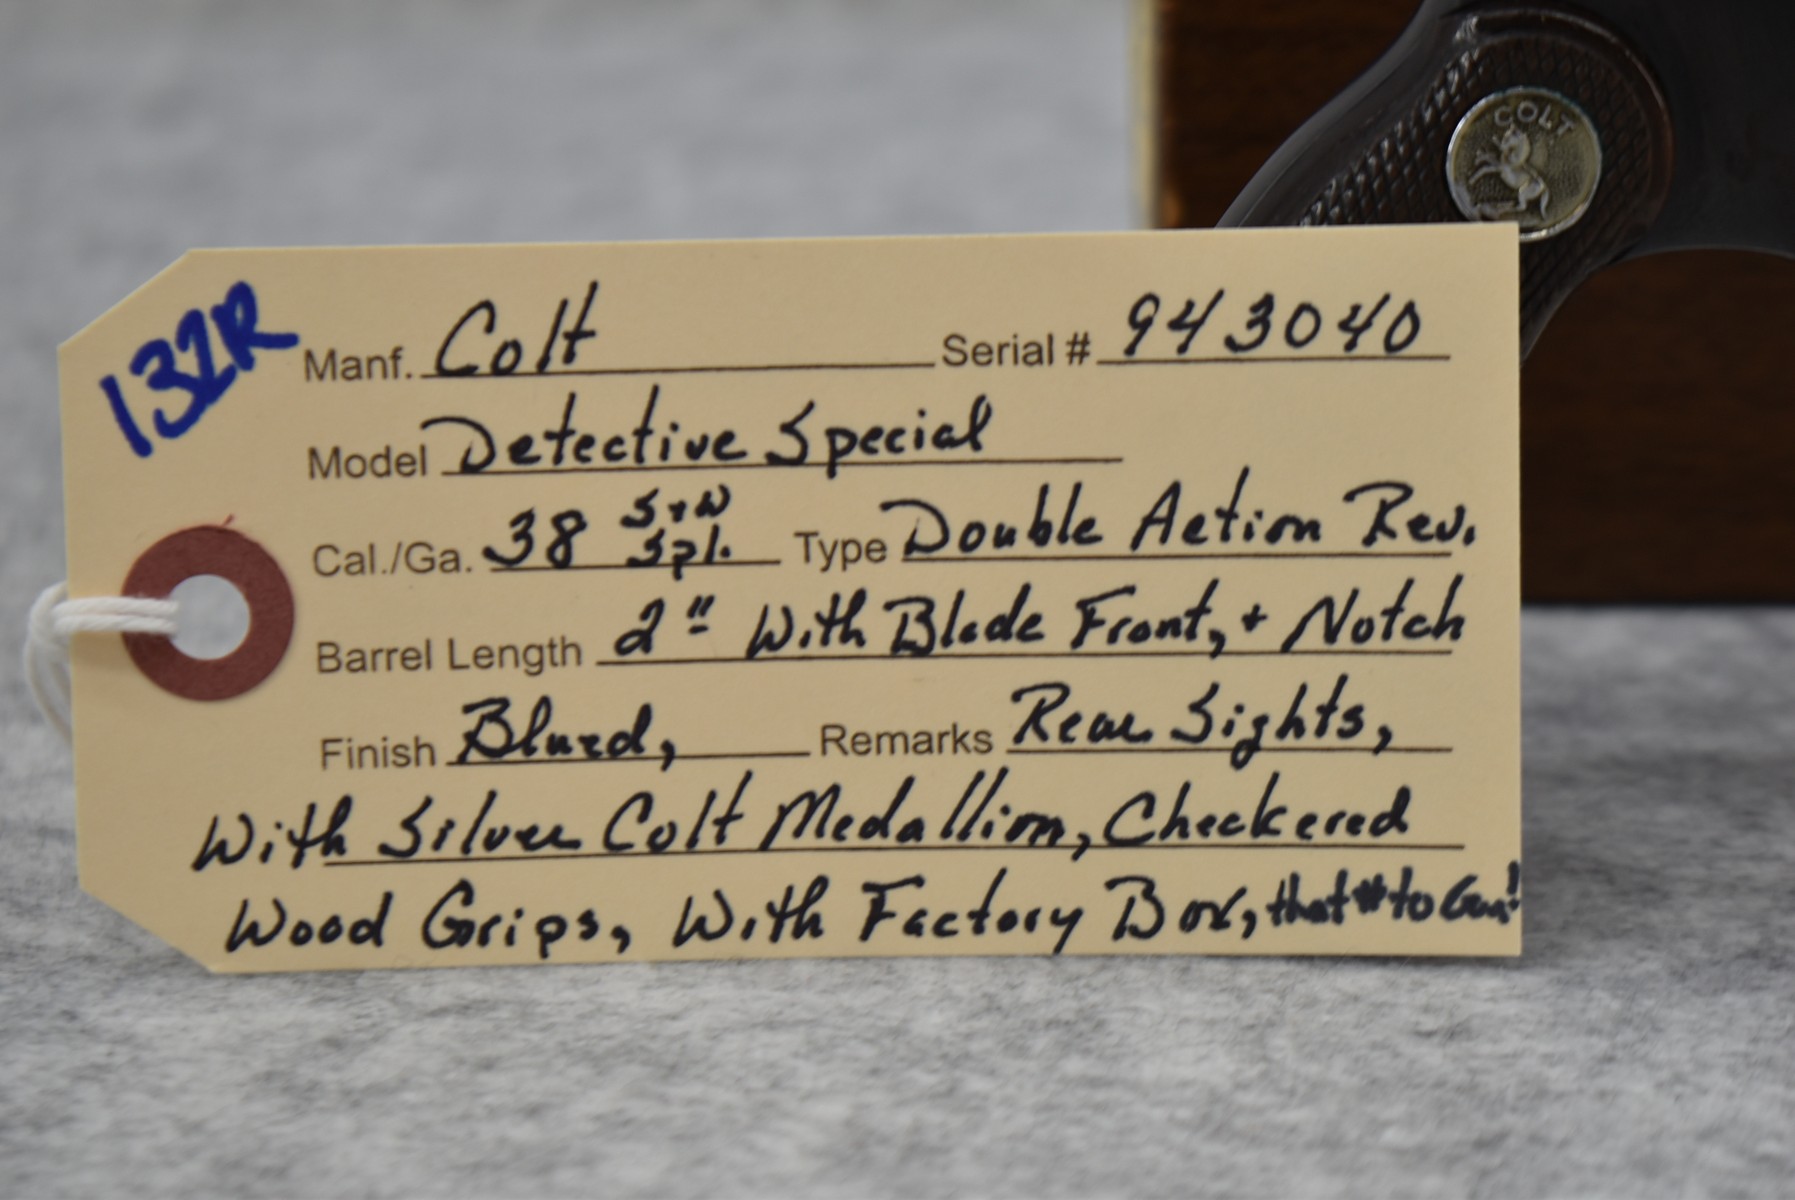 COLT
132R
Manf. Colt Serial # 943040
Model Detective Special
Cal./Ga. 38 S+W Spl. Type Double Action Rev.
Barrel Length 2" With Blade Front, + Notch
Finish Blued, Remarks Rear Sights,
With Silver Colt Medallion, Checkered
Wood Grips, With Factory Box, that # to Gun!